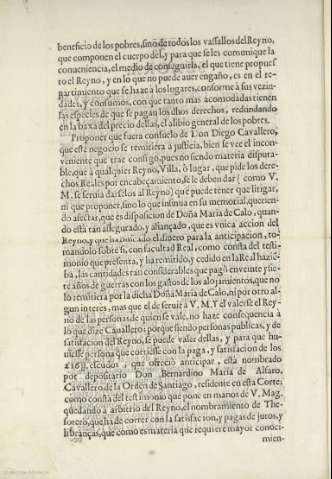 beneficio de los pobres, sino de todos los vassallos del Reyno,
que componen el cuerpo del, y para que se les comunique la
conueniencia, el medio de conseguirla, es el que tiene propues-
to el Reyno, y en lo que no puede auer engaño, es en el re-
partimiento que se haze à los lugares, conforme à sus vezin-
dades, y consumos, con que tanto mas acomodadas tienen
las especies de que se pagan los dhos derechos, redundando
en la baxa del precio dellas, el aliuio general de los pobres.
Proponer que fuera consuelo de Don Diego Cavallero,
que este negocio se remitiera à justicia, bien se vee el incon-
veniente que trae consigo, pues no siendo materia disputa-
ble, que à qualquier Reyno, Villa, ò lugar, que pide los dere-
chos Reales por encabeçamiento, se le deben dar ( como V.
M. se seruia darselos al Reyno) què puede tener que litigar,
ni que proponer, sino lo que insinua en su memorial, querien-
do afectar, que es disposicion de Doña Maria de Calo, quan-
do està tan assegurado, y afiançado, que es vnica accion del
Reyno, y que ha buscado el dinero para la anticipacion, to-
mandolo sobre si, con facultad Real, como consta del testi-
monio que presenta, y ha remitido, y cedido en la Real hazie-
da, las cantidades tan considerables que pagò en veinte y sie-
te años de guerras con los gastos de los alojamientos, que no
lo remitiera por la dicha Doña Maria de Calo, ni por otro al-
gun interes, mas que el de seruir à V. M. Y el valerse el Rey-
no de las personas de quien se vale, no haze consequencia à
lo que dize Cauallero; porque siendo personas publicas, y de
satisfacion del Reyno, se puede valer dellas, y para que hu-
uiesse persona que corriesse con la paga, y satisfacion de los
escudos, que ofreciò anticipar, està nombrado
por depositario Don Bernardino Maria de Alfaro,
Cavallero de la Orden de Santiago, residente en esta Corte,
como consta del testimonio que pone en manos de V. Mag.
quedando à arbitrio del Reyno, el nombramiento de The-
sorero, que ha de correr con la satisfacion, y pagas de juros, y
libranças, que como es materia que requiere mayor conoci-
mien-